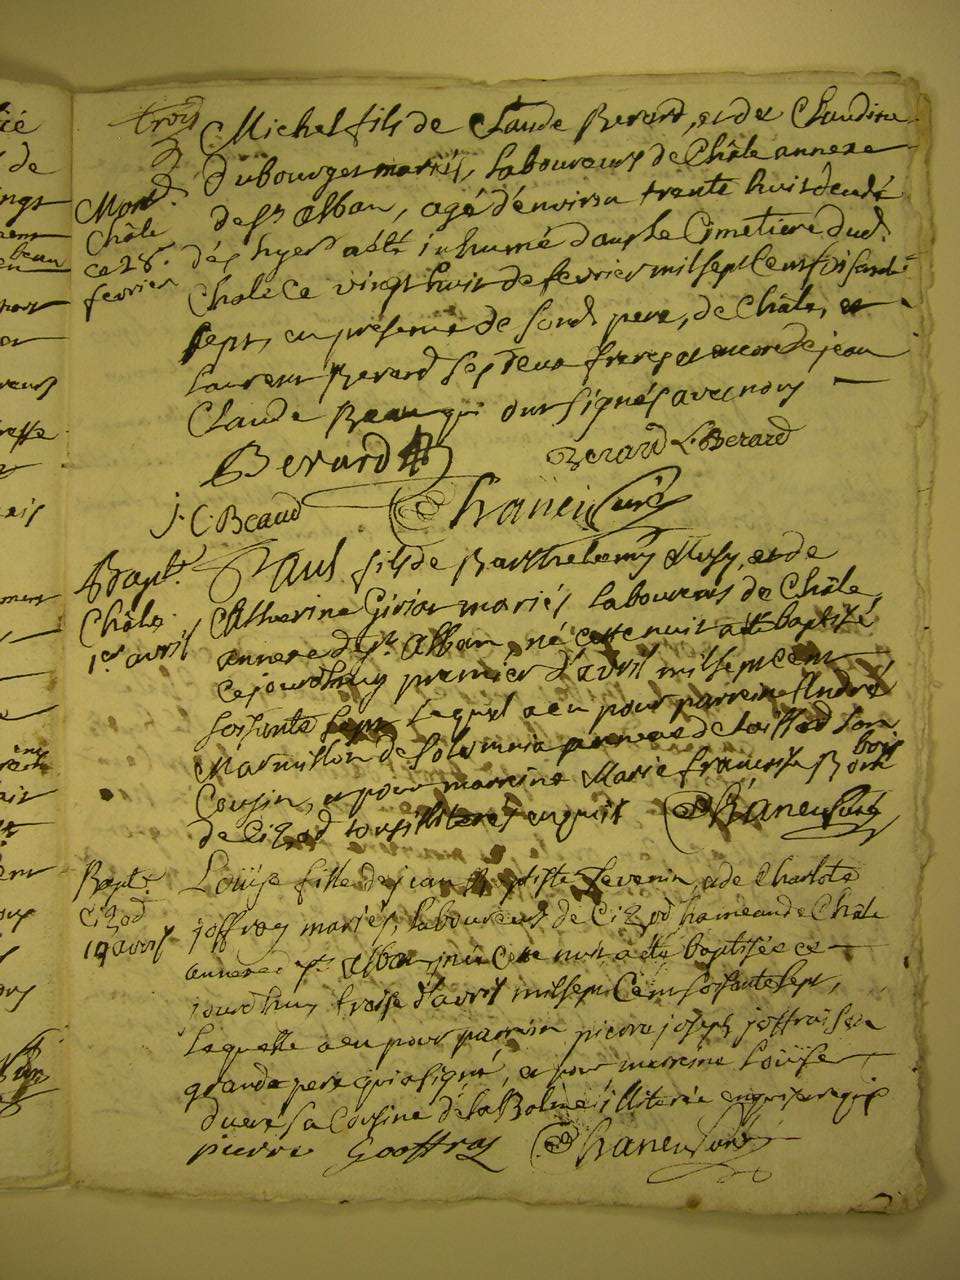 trois
Michel fils de Claude Berard, et de Claudine
Dubourget mariés, laboureurs de Châle annexe
de St Alban, agé d'environ trente huit
Mort
Châle
ce 28e
fevrier
hyer a été inhumé dans le Cimetiere dud.
Châle ce vingt huit de fevrier mil sept Cent soisante
sept, en presence de pere, de Châle, et
Laurent Berard ses deux freres et encore de jean
Claude Beau qui ont signés avec nous
Berard Berard L. Berard
J. C. Beaud Chaneu Curé
Bapt.
Châle
1er avril
Paul fils de Barthelemy et de
Catherine mariés laboureurs de Châle
annexe d St Alban né cette nuit a été baptisé
ce jourdhuy premier d'avril mil sept cent
soisante sept lequel a eu pour parrein André
Marmillon de Solomnia annexe de son
Cousin, et pour marreine Marie françoise
bois
de Cizod tous illiterés enquis Chaneu Curé
Bapt.
Cizod
avril
Loüise fille de jean Baptiste Thevenin, et de Charlote
joffray mariés, laboureurs de Cizod hameau de Châle
annexe d St Alban née cette nuit a été baptisée ce
jourdhuy treise d'avril mil sept Cent soisante sept,
laquelle a eu pour parrein pierre joseph joffrai son
grand pere qui a signé, et pour marreine Loüise
sa Cousine de la Balme illiterée enquise
pierre Goffray Chaneu Curé